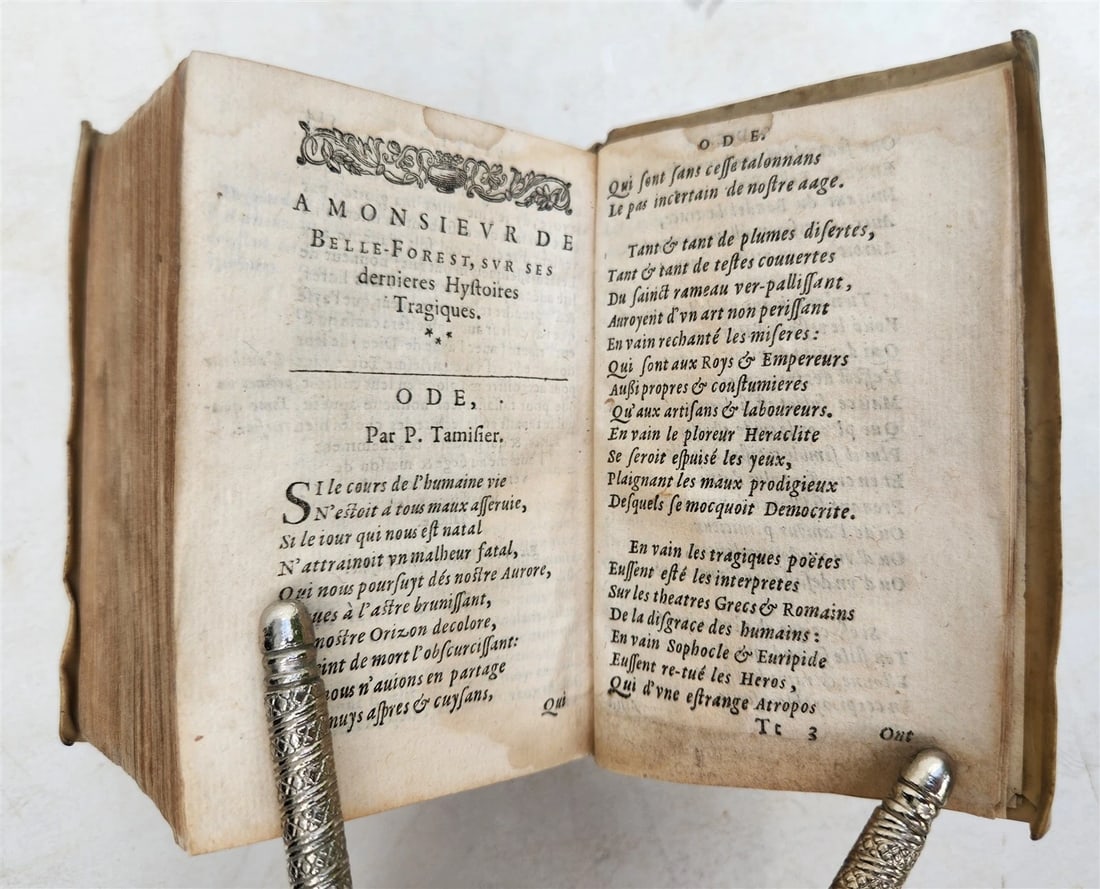 A MONSIEVR DE
BELLE-FOREST, SVR SES
dernieres Hyſtoires
Tragiques.
***
ODE,
Par P. Tamiſier.
SI le cours de l'humaine vie
N'eſtoit à tous maux aſſeruie,
Si le iour qui nous eſt natal
N'attrainoit vn malheur fatal,
Qui nous pourſuyt dés noſtre Aurore,
ques à l'aſtre bruniſſant,
noſtre Orizon decolore,
eint de mort l'obſcurciſſant:
nous n'auions en partage
nuys aſpres & cuyſans,
Qui
ODE.
Qui ſont ſans ceſſe talonnans
Le pas incertain de noſtre aage.
Tant & tant de plumes diſertes,
Tant & tant de teſtes couuertes
Du ſainct rameau ver-palliſſant,
Auroyent d'vn art non periſſant
En vain rechanté les miſeres:
Qui ſont aux Roys & Empereurs
Außi propres & couſtumieres
Qu'aux artiſans & laboureurs.
En vain le ploreur Heraclite
Se ſeroit eſpuisé les yeux,
Plaignant les maux prodigieux
Deſquels ſe mocquoit Democrite.
En vain les tragiques poëtes
Euſſent eſté les interpretes
Sur les theatres Grecs & Romains
De la diſgrace des humains:
En vain Sophocle & Euripide
Euſſent re-tué les Heros,
Qui d'vne eſtrange Atropos
Tt 3
Ont